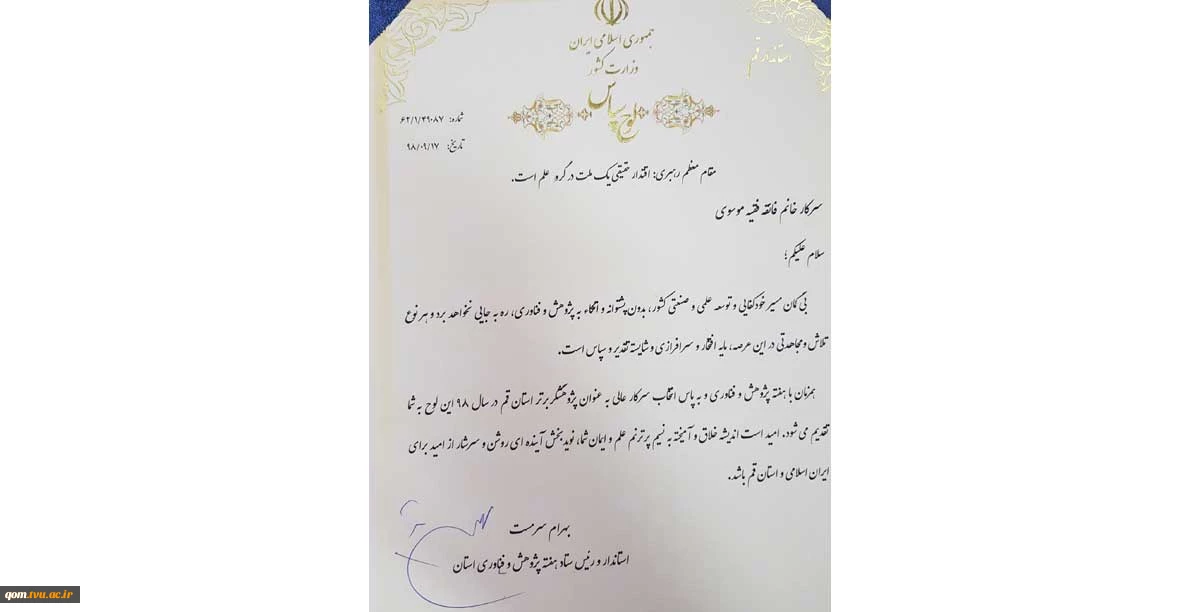 جمهوری اسلامی ایران
وزارت کشور
استاندار قم
لوح سپاس
شماره: ۶۲/۱/۴۹۰۸۷
تاریخ: ۹۸/۰۹/۱۷
مقام معظم رهبری: اقتدار حقیقی یک ملت در گرو علم است.
سرکار خانم فائقه فقیه موسوی
سلام علیکم؛
بی گمان مسیر خودکفایی و توسعه علمی و صنعتی کشور، بدون پشتوانه و اتکاء به پژوهش و فناوری، ره به جایی نخواهد برد و هر نوع
تلاش و مجاهدتی در این عرصه، مایه افتخار و سرافرازی و شایسته تقدیر و سپاس است.
همزمان با هفته پژوهش و فناوری و به پاس انتخاب سرکار عالی به عنوان پژوهشگر برتر استان قم در سال ۹۸ این لوح به شما
تقدیم می شود. امید است اندیشه خلاق و آمیخته به نسیم پر ترنم علم و ایمان شما، نوید بخش آینده ای روشن و سرشار از امید برای
ایران اسلامی و استان قم باشد.
بهرام سرمست
استاندار و رئیس ستاد هفته پژوهش و فناوری استان
qom.tvu.ac.ir